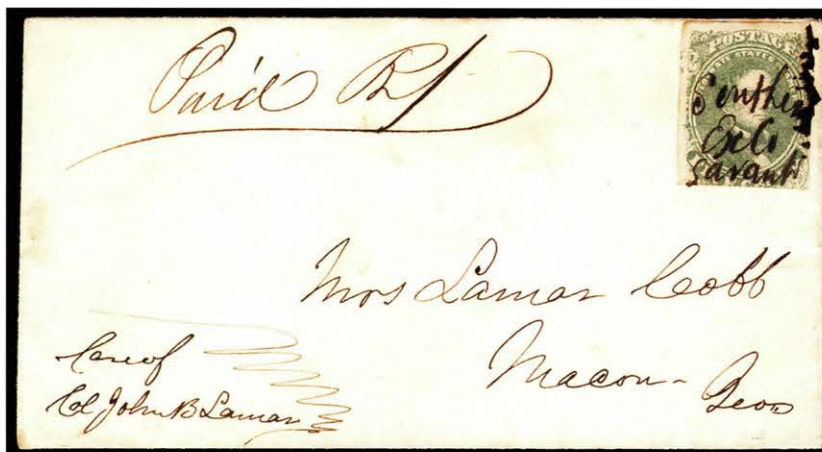 Paid
POSTAGE
STATES
Southern
Exco
savanh
Mrs Lamar Cobb
Macon-
Geo
Care of
Col John B Lamar